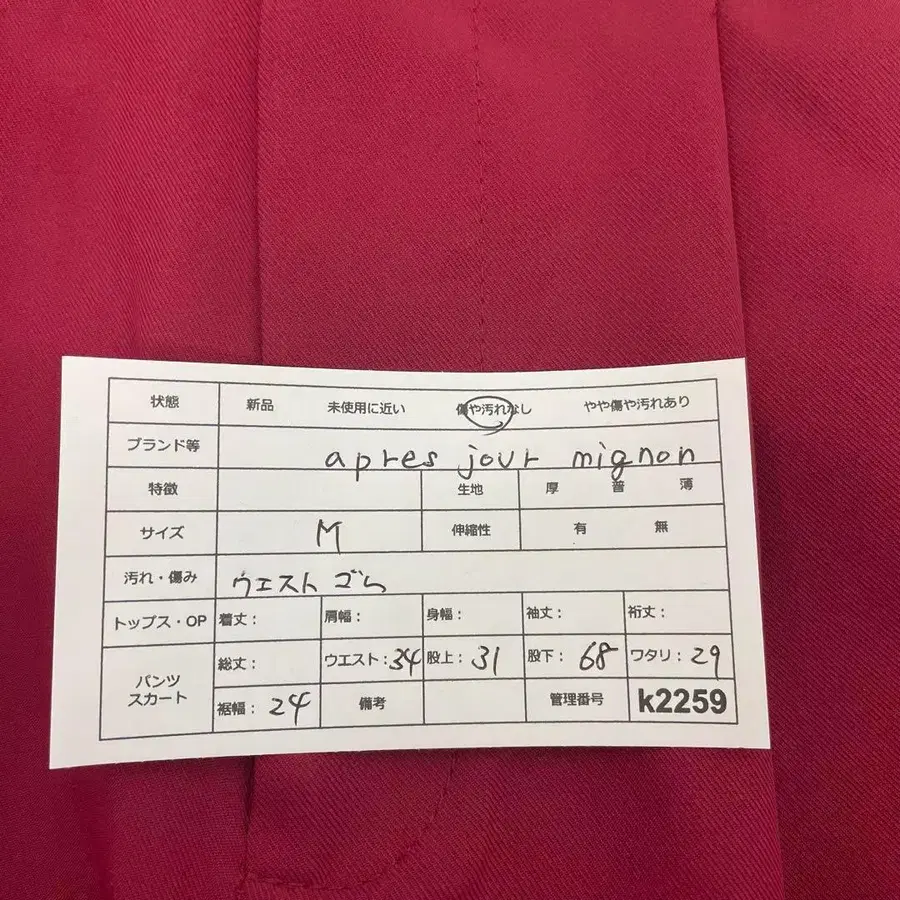 状態 新品 未使用に近い 傷や汚れなし やや傷や汚れあり
ブランド等 apres jour mignon
特徴 生地 厚 普 薄
サイズ M 伸縮性 有 無
汚れ・傷み ウエスト ゴム
トップス・OP 着丈： 肩幅： 身幅： 袖丈： 裄丈：
パンツ スカート
総丈： ウエスト：34 股上：31 股下：68 ワタリ：29
裾幅：24 備考 管理番号 k2259